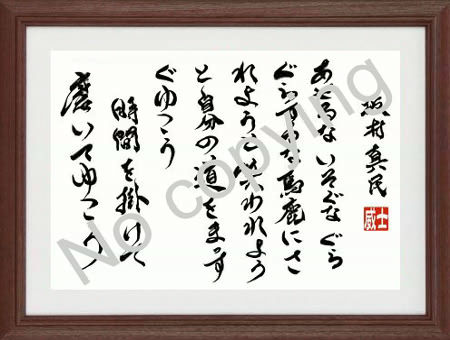 坂村真民
あせるな いそぐな ぐら
ぐらするな 馬鹿にさ
れようと笑われよう
と自分の道をまっす
ぐゆこう
時間を掛けて
磨いてゆこう
士威
No copying